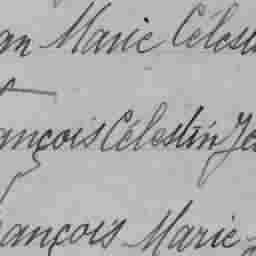 an Marie Célest
ançois Célestin Je
ançois Marie